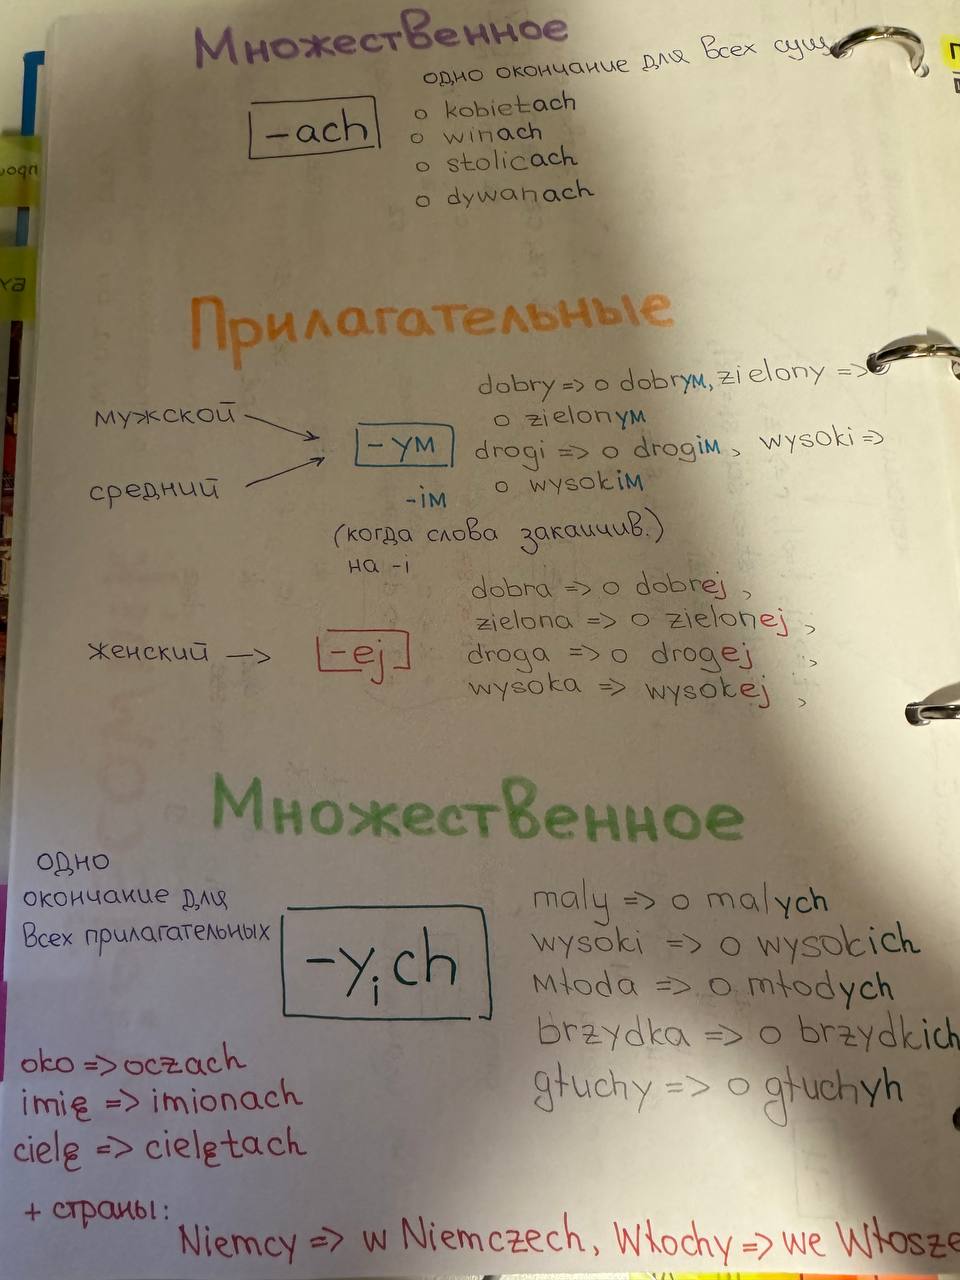 Множественное
одно окончание для всех сущ
-ach
o kobietach
o winach
o stolicach
o dywanach
Прилагательные
мужской
средний
-ум
-ім
(когда слова заканчив.)
на -i
dobry => o dobrym, zielony =>
o zielonym
drogi => o drogim, wysoki =>
o wysokim
женский —>
-ej
dobra => o dobrej,
zielona => o zielonej,
droga => o drogej,
wysoka => wysokej,
Множественное
одно
окончание для
всех прилагательных
-y,ich
maly => o malych
wysoki => o wysokich
młoda => o młodych
brzydka => o brzydkich
głuchy => o głuchyh
oko => oczach
imię => imionach
cielę => cielętach
+ страны:
Niemcy => w Niemczech, Włochy => we Włosze